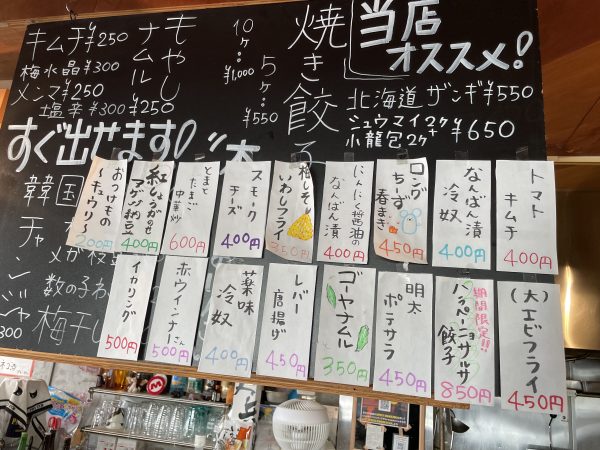 当店
オススメ!
北海道 ザンギ¥550
シュウマイ2ケ
小龍包2ケ
¥650
焼き餃子
5ケ…
¥550
10ケ…
¥1,000
もやし
ナムル
¥250
キムチ¥250
梅水晶¥300
メンマ¥250
塩辛¥300
すぐ出せます!
韓国
チャンジャ
300
数の子わ
梅干し
トマト
キムチ
400円
なんばん漬
冷奴
400円
ロング
ちーず
春まき
450円
にんにく醤油の
なんばん漬
400円
梅しそ
いわしフライ
350円
スモーク
チーズ
400円
とまと
たまご
中華炒
600円
紅しょうがのせ
アゲ納豆
400円
おつけもの
〜キュウリ〜
200円
(大エビフライ)
450円
期間限定!!
ハラペーニョサルサ
餃子
850円
明太
ポテサラ
450円
ゴーヤナムル
350円
レバー
唐揚げ
450円
薬味
冷奴
400円
赤ウインナーさん
500円
イカリング
500円